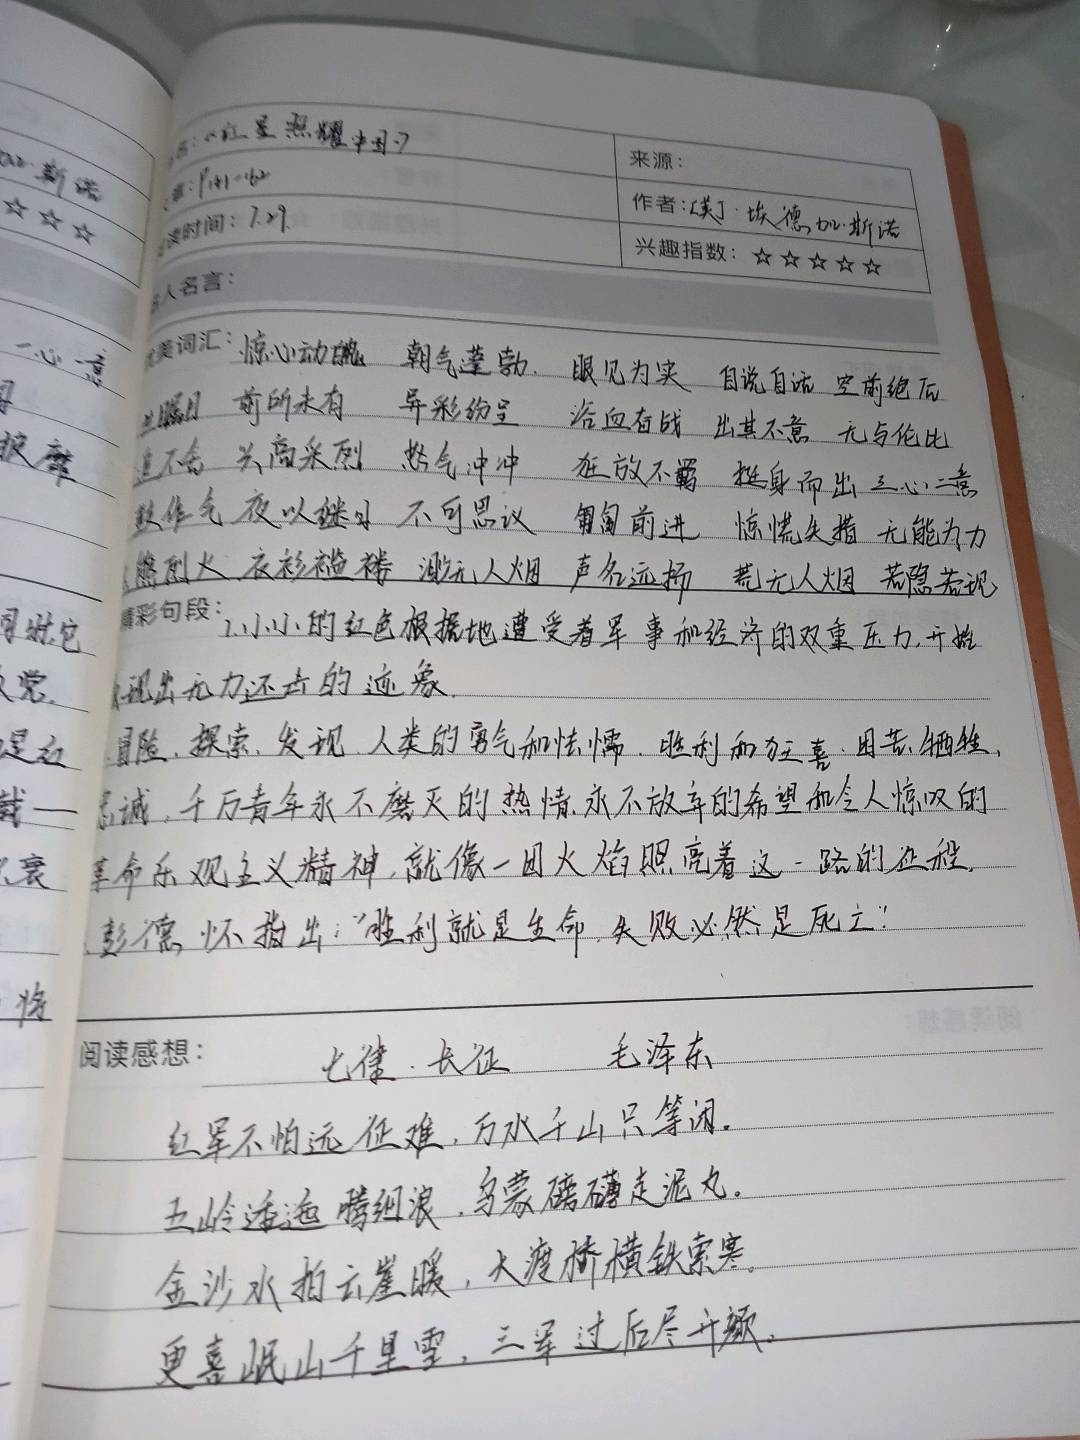 名：《红星照耀中国》
来源：
章：P141-162
作者：[美]·埃德加·斯诺
读时间：7.29.
兴趣指数：☆☆☆☆☆
人名言：
美词汇：惊心动魄 朝气蓬勃. 眼见为实 自说自话 空前绝后
瞩目 前所未有 异彩纷呈 浴血奋战 出其不意 无与伦比
不舍 兴高采烈 热气冲冲 狂放不羁 挺身而出 三心二意
鼓作气 夜以继日 不可思议 匍匐前进 惊慌失措 无能为力
熊烈火 衣衫褴褛 渺无人烟 声名远扬 荒无人烟 若隐若现
精彩句段：1.小小的红色根据地遭受着军事和经济的双重压力,开始
现出无力还击的迹象.
冒险、探索、发现、人类的勇气和怯懦、胜利和狂喜、困苦、牺牲、
忠诚，千万青年永不磨灭的热情、永不放弃的希望和令人惊叹的
革命乐观主义精神,就像一团火焰照亮着这一路的征程.
彭德怀指出："胜利就是生命,失败必然是死亡."
阅读感想： 七律·长征 毛泽东
红军不怕远征难，万水千山只等闲。
五岭逶迤腾细浪，乌蒙磅礴走泥丸。
金沙水拍云崖暖，大渡桥横铁索寒。
更喜岷山千里雪，三军过后尽开颜。
斯诺
☆☆☆☆
一心一意
披靡